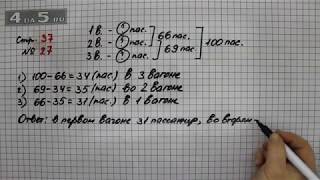 4 на 5.ru
Стр. 37
№ 27
1 в. - ? пас.
2 в. - ? пас.
3 в. - ? пас.
66 пас.
69 пас.
100 пас.
1) 100-66=34 (пас.) в 3 вагоне
2) 69-34=35 (пас.) во 2 вагоне
3) 66-35=31 (пас.) в 1 вагоне
Ответ: в первом вагоне 31 пассажир, во втором